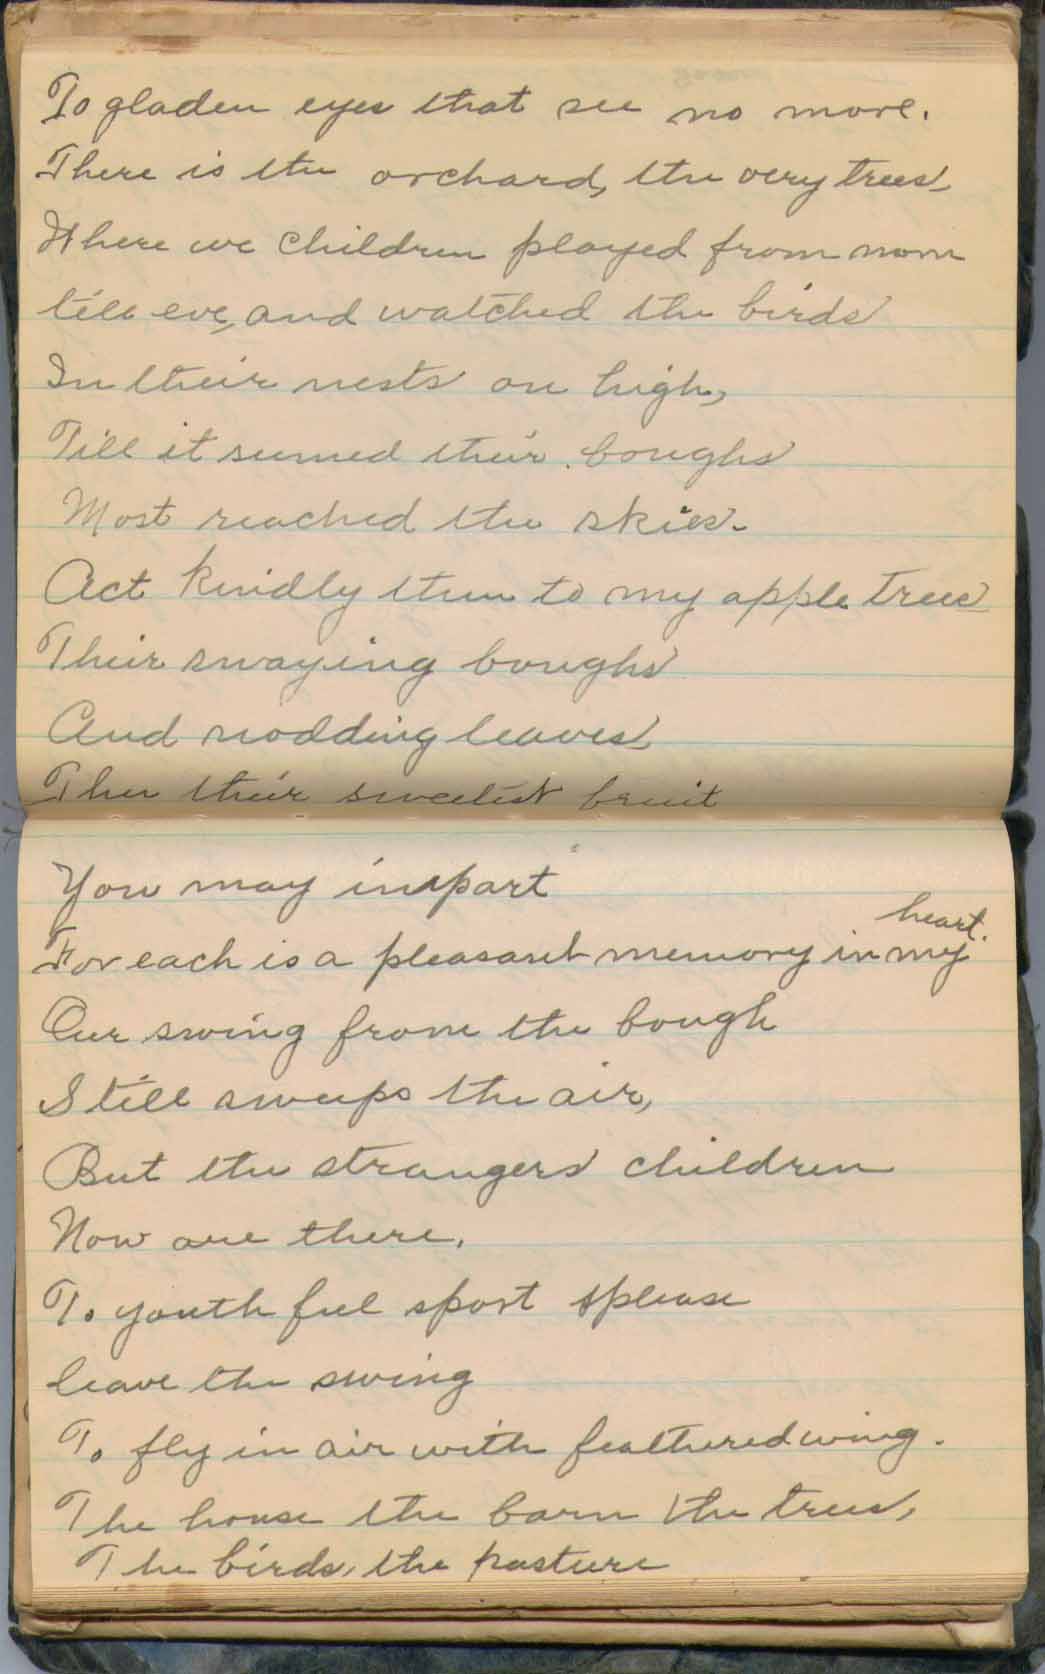 To gladen eyes that see no more.
There is the orchard, the very trees
Where we children played from morn
till eve, and watched the birds
In their nests on high,
Till it seemed their boughs
Most reached the skies.
Act kindly then to my apple trees
Their swaying boughs
And nodding leaves
Then their sweetest fruit
You may inpart
For each is a pleasant memory in my heart.
Our swing from the bough
Still sweeps the air,
But the strangers children
Now are there.
To youth ful sport please
leave the swing
To fly in air with feathured wing.
The house the barn the trees,
The birds, the pasture